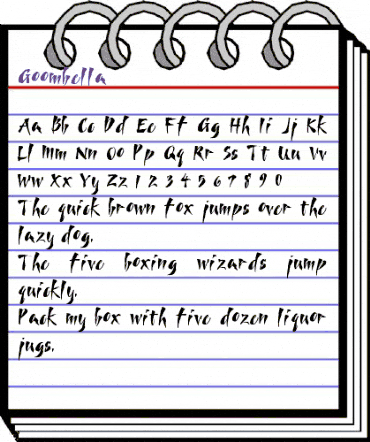 Goombella
Aa Bb Cc Dd Ee Ff Gg Hh Ii Jj Kk
Ll Mm Nn Oo Pp Qq Rr Ss Tt Uu Vv
Ww Xx Yy Zz 1 2 3 4 5 6 7 8 9 0
The quick brown fox jumps over the
lazy dog.
The five boxing wizards jump
quickly.
Pack my box with five dozen liquor
jugs.